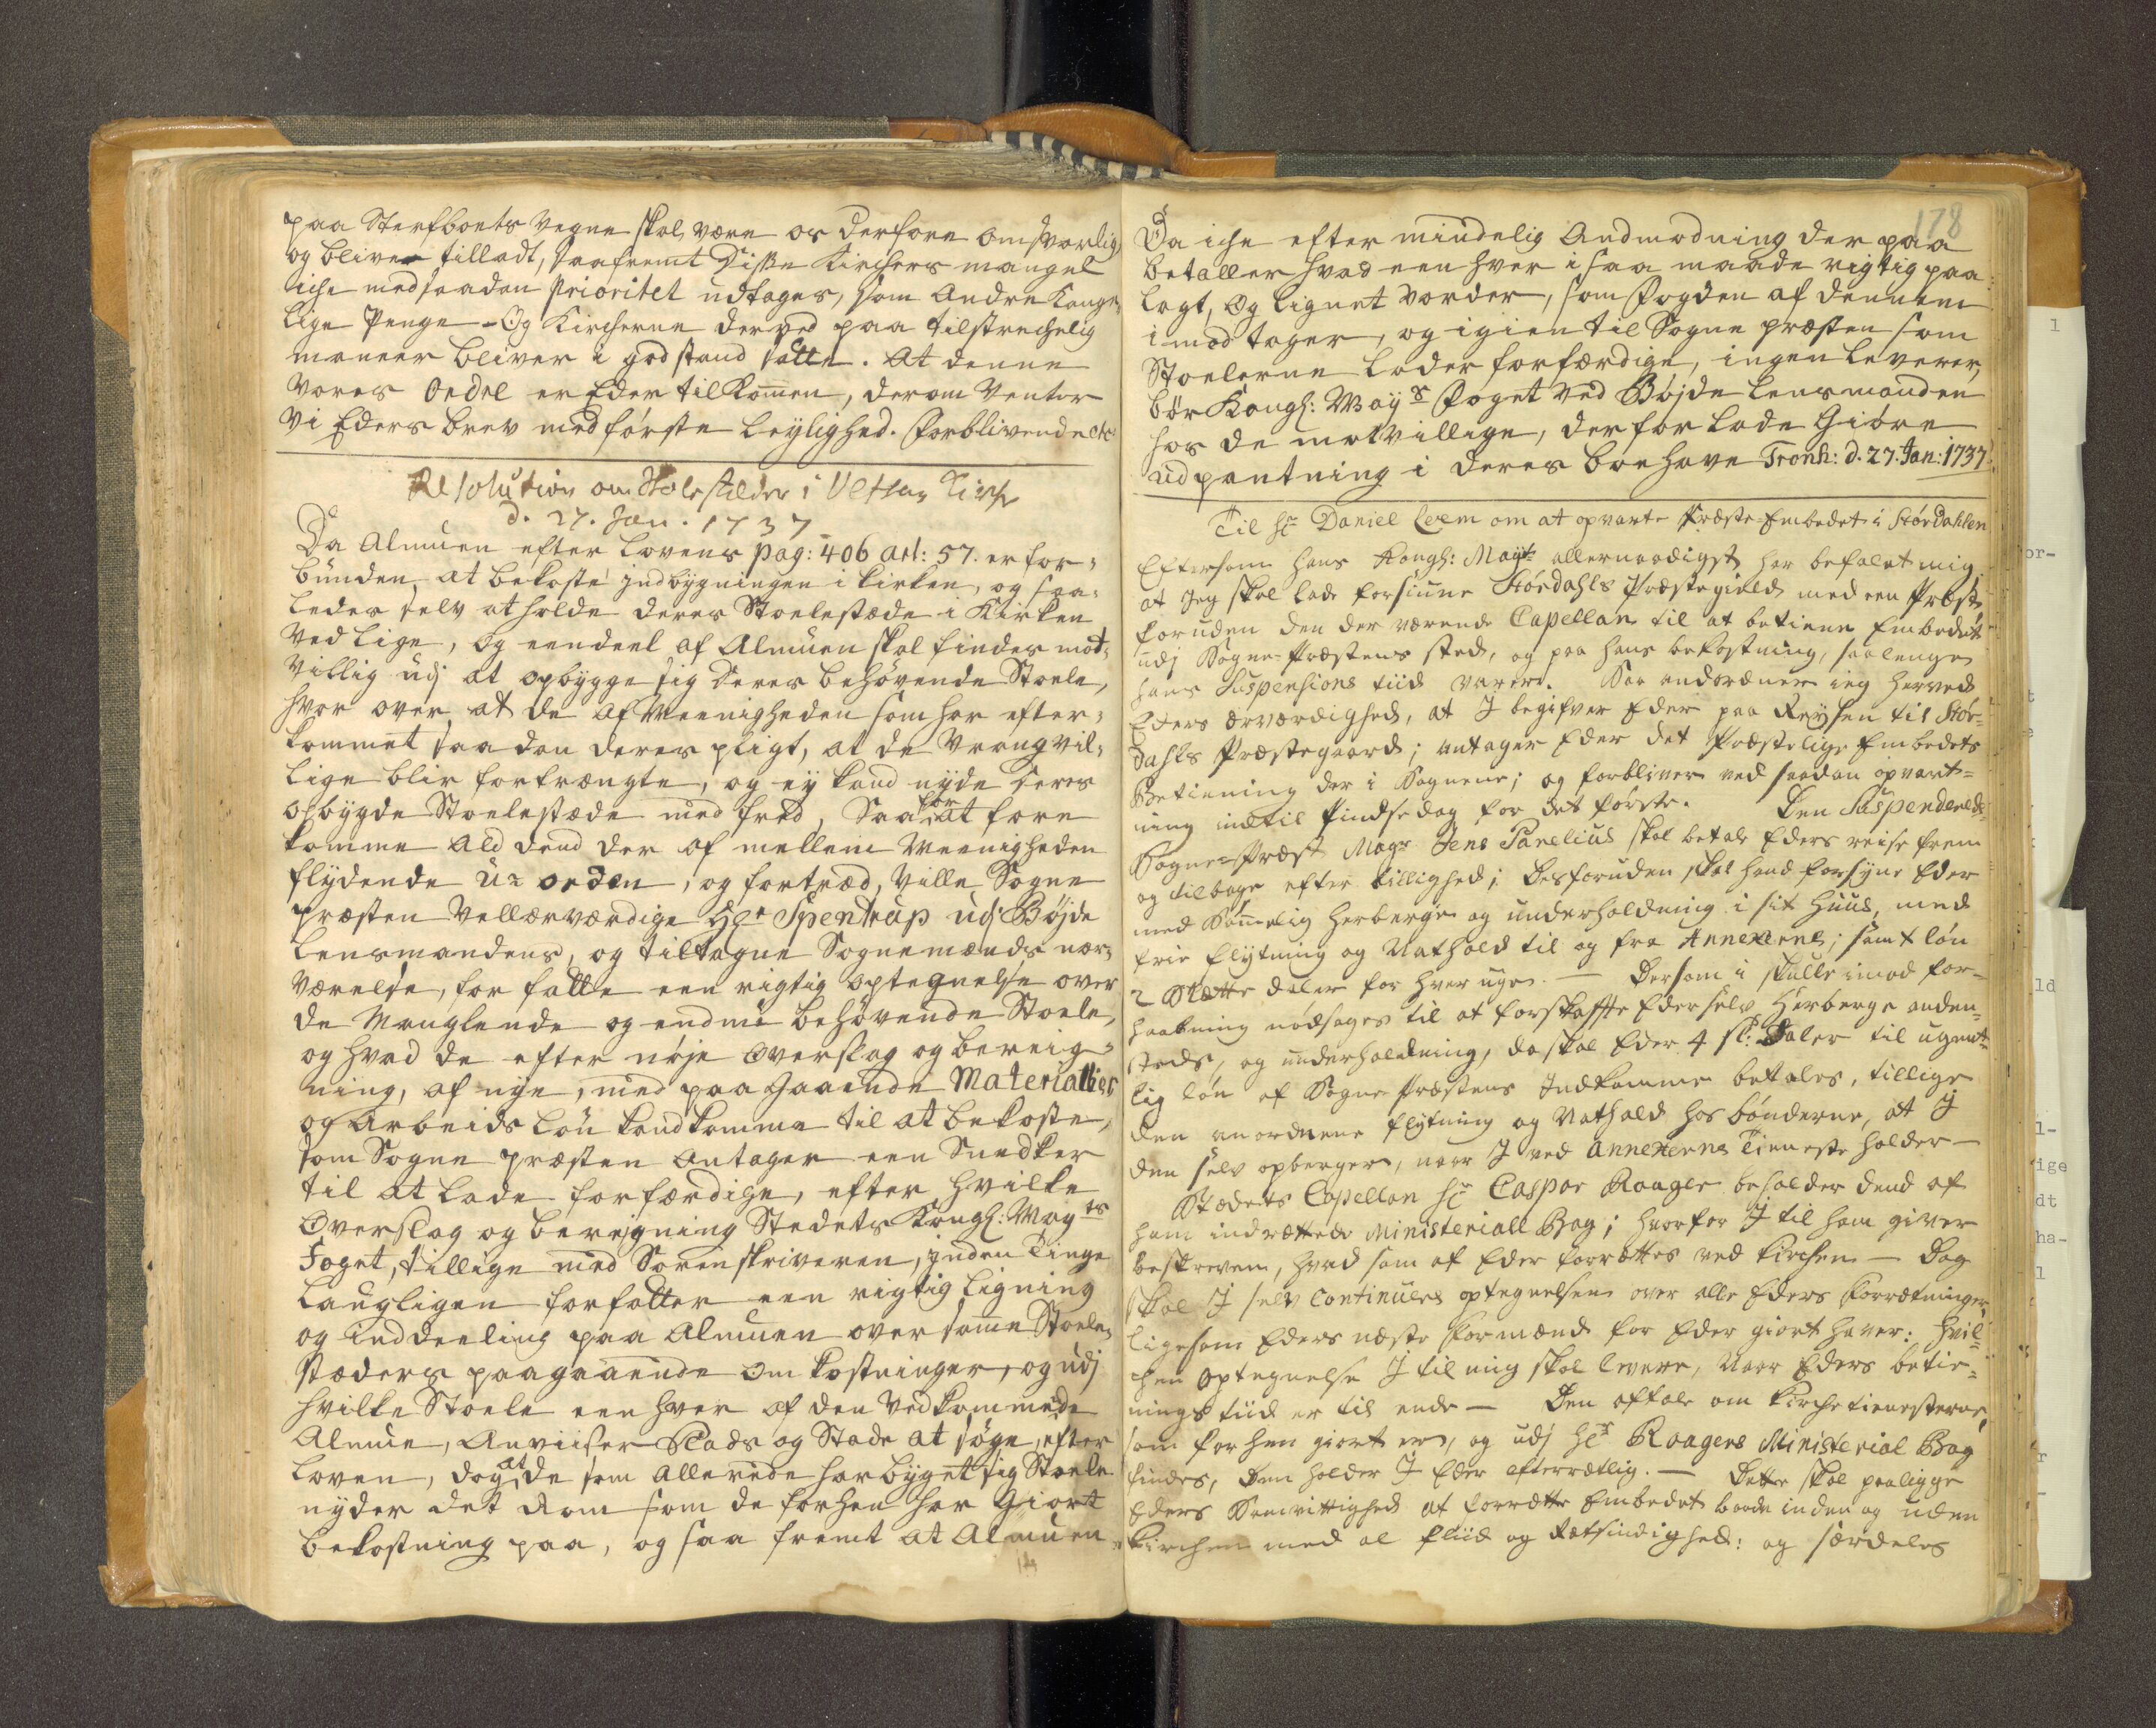 paa Sterfboets vegne skal være os derfore ansvarlig
og bliver tilladt, saafremt disse Kirchers mangel
iche med saadan prioritet udtages, som andre Konge¬
lige Penge - Og Kircherne derved paa tilstrechelig
maneer bliver i god stand satte. At denne
vores Ordre er Eder tilkommen, derom venter
Vi Eders brev med første leylighed. Forblivende etc
Resolution om Stolestæder i Kirke
d. 27. Jan. 1737
Da Almuen efter Lovens pag: 406 art: 57. er for¬
bunden at bekoste jndbygningen i kirken, og saa¬
ledes selv at holde deres Stoelestæde i Kirken
ved lige, og eendeel af Almuen skal findes mod¬
villig udj at opbygge sig deres behøvende Stoele,
hvor over at de af Meenigheden som har efter¬
kommet saadan deres pligt, at de Vrangvil¬
lige blir fortrængte, og ey kand nyde deres
opbygde Stoelestæde med fred, Saa for at fore
komme ald dend der af mellem Meenigheden
flydende Uorden, og fortræd, ville Sogne
præsten Vellærværdige Hr Spentrup udj Bøjde
Lensmandens, og tiltagne Sognemænds nær¬
værelse, for fatte een rigtig optegnelse over
de Manglende og endnu behøvende Stoele,
og hvad de efter nøje Overslag og bereig¬
ning, af nye, med paa gaaende Materialier
og Arbeids løn kand komme til at bekoste,
som Sogne præsten antager een Snedker
til at lade forfærdige, efter hvilke
Overslag og beregning Stedets Kongl: Mayts
Foget, tillige med Sorenskriveren, jnden Tinge
laugligen forfatter een rigtig ligning
og inddeeling paa Almuen over samme Stoele¬
stæders paagaaende Omkostninger, og udj
hvilke Stoele een hver af den Vedkommede
Almue, Anviiser Plads og Stade at søge, efter
loven, dog at de som allerede har bygget sig Stoele
nyder det Rom som de forhen har Giort
bekostning paa, og saa fremt at Almuen
14
178
Da iche efter mindelig Andmodning der paa
betaller hvad een hver i saa maade rigtig paa¬
lagt, og lignet vorder, som Fogden af dennem
i mod tager, og igien til Sogne præsten som
Stoelerne lader forfærdige, ingen leverer,
bør Kongl: Mayts Foget ved Bøjde lensmanden
hos de motvillige, der for lade Giøre
udpantning i deres boehave Tronh: d. 27. Jan: 1737
Til Hr Daniel Leem om at opvarte Præste-Embedet i Størdahlen
Eftersom Hans Kongl: Mayt allernaadigst har befalet mig
at Jeg skal lade forsiune Størdahls Præstegield med een Præst
foruden den der værende Capellan til at betiene Embedet
udj Sogne-Præstens sted, og paa hans bekostning, saalenge
hans Suspensions tiid varer. Saa andordner ieg herved
Eders Ærværdighed, at J begifver Eder paa Reysen til Stør¬
dahls Præstegaard; antager Eder det Præstelige Embedets
Betiening der i Sognene; og forbliver ved saadan opvart¬
ning indtil Pindsedag for det første. Den Suspenderede
Sogne-Præst Magr Jens Parelius skal betale Eders reise frem
og tilbage efter billighed; Desforuden skal hand forsyne Eder
med Sømmelig herberge og underholdning i sit Huus, med
frie flytning og Nathold til og fra Annexerne; samt løn
2 Slette daler for hver uge. - Dersom i skulle imod for¬
haabning nødsages til at forskaffe Eder selv Herberge anden¬
steds, og underholdning, da skal Eder 4 sl: Daler til ugent¬
lig løn af Sogne-Præstens Indkomme betales, tillige
den anordnene flytning og Nathold hos bønderne, at J
den selv opberger, naar J ved Annexerne Tieneste holder -
Stædets Capellan Hr Caspar Roager beholder dend af
ham indrettede Ministeriall Bog; hvorfor J til ham giver
beskreven, hvad som af Eder forrettes ved Kirchen - Dog
skal J selv Continuere optegnelsen over alle Eders Forrætninger
ligesom Eders næste Formænd for Eder giort haver: hvil¬
chen Optegnelse J til mig skal levere, Naar Eders betie¬
nings tiid er til ende - Den aftale om Kirche tienesterne,
som forhen giort er, og udj Hr Roagers Ministerial Bog
findes, Den holder J Eder efterrætlig. - Dette skal paaligge
Eders Samvittighed at forrette Embedet baade inden og uden
Kirchen med al fliid og Rætsindighed: og særdeles